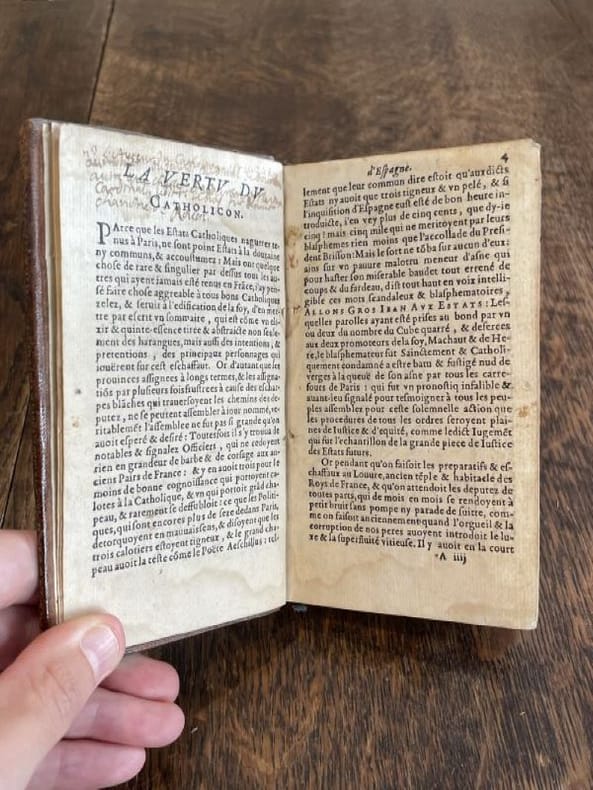 LA VERTV DV
CATHOLICON.
PArce que les Estats Catholiques nagueres te-
nus à Paris, ne sont point Estats à la douzaine
ny communs, & accoustumez: Mais ont quelque
chose de rare & singulier par dessus tous les au-
tres qui ayent jamais esté tenus en Frāce, j'ay pen-
sé faire chose aggreable à tous bons Catholiques
zelez, & servir à l'edification de la foy, d'en met-
tre par escrit vn sommaire, qui est cōme vn eli-
xir & quinte-essence tirée & abstraicte non seule-
ment des harangues, mais aussi des intentions, &
pretentions, des principaux personnages qui
jouërent sur cest eschaffaut. Or d'autant que les
prouinces assignées à longs termes, & les assigna-
tiōs par plusieurs fois frustrées à cause des eschar-
pes blāches qui trauersoyent les chemins des de-
putez, ne se peurent assembler à jour nommé, ve-
ritablemēt l'assemblee ne fut pas si grande qu'on
auoit esperé & desiré: Toutesfois il s'y trouua de
notables & signalez Officiers, qui ne cedoyent
rien en grandeur de barbe & de corsage aux an-
ciens Pairs de France: & y en auoit trois pour le
moins de bonne cognoissance qui portoyent ca-
lotes à la Catholique, & vn qui portoit grād cha-
peau, & rarement se deffubloit: ce que les Politi-
ques, qui sont encores plus de sere dedans Paris,
detorquoyent en mauuais sens, & disoyent que les
trois calotiers estoyent tigneux, & le grand cha-
peau auoit la teste cōme le Poëte Aeschillus: tel-
d'Espagne.
4
lement que leur commun dire estoit qu'aux dicts
Estats ny auoit que trois tigneux & vn pelé, & si
l'inquisition d'Espagne eust esté de bon heure in-
troduicte, i'en vey plus de cinq cents, que dy-ie
cinq? mais cinq mile qui ne meritoyent par leurs
blasphemes rien moins que l'accollade du Presi-
dent Brisson: Mais le sort ne tōba sur aucun d'eux:
ains sur vn pauure malotru meneur d'asne qui
pour haster son miserable baudet tout errené de
coups & du fardeau, dist tout haut en voix intelli-
gible ces mots scandaleux & blasphematoires,
ALLONS GROS IEAN AVX ESTATS: Les-
quelles parolles ayant esté prises au bond par vn
ou deux du nombre du Cube quarré, & deferees
aux deux promoteurs de la foy, Machaut & de He-
re, le blasphemateur fut Sainctement & Catholi-
quement condamné a estre batu & fustigé nud de
verges à la queuë de son asne par tous les carre-
fours de Paris: qui fut vn pronostiq infalible &
auant-ieu signalé pour tesmoigner à tous les peu-
ples assemblez pour ceste solemnelle action que
les procedures de tous les ordres seroyent plai-
nes de Iustice & d'equité, comme ledict Iugemēt
qui fut l'echantillon de la grande piece de Iustice
des Estats futurs.
Or pendant qu'on faisoit les preparatifs & es-
chaffaux au Louure, ancien tēple & habitacle des
Roys de France, & qu'on attendoit les deputez de
toutes parts, qui de mois en mois se rendoyent à
petit bruit sans pompe ny parade de suitte, com-
me on faisoit anciennement quand l'orgueil & la
corruption de nos peres auoyent introduit le lu-
xe & la superfluité vitieuse. Il y auoit en la court
A iiij